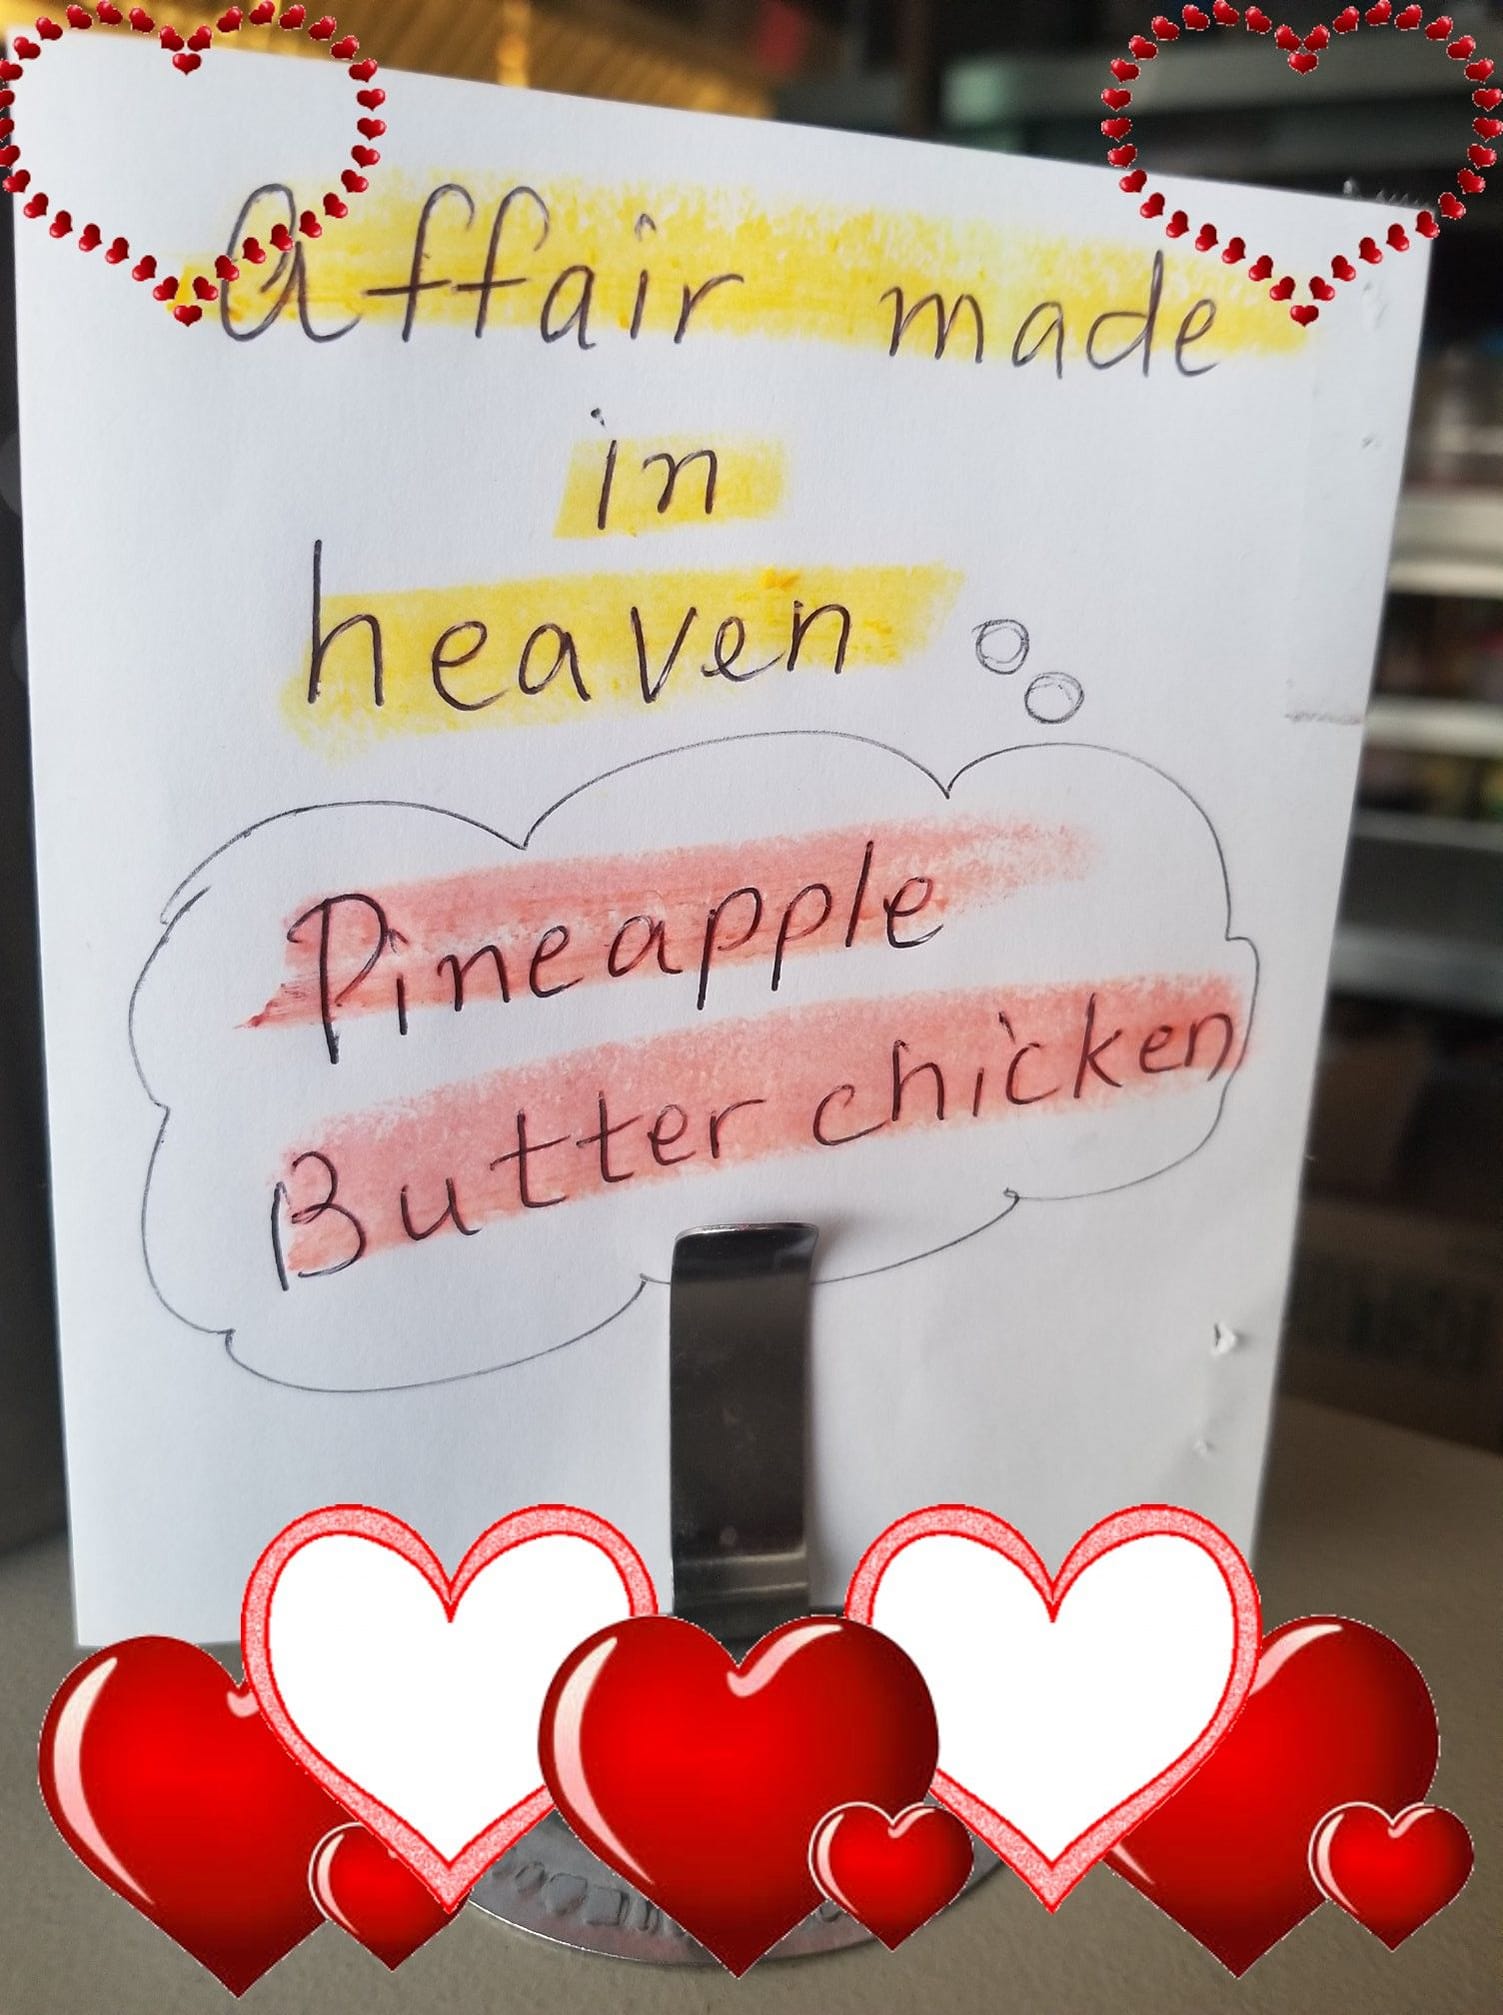 affair made
in
heaven
Pineapple
Butter chicken